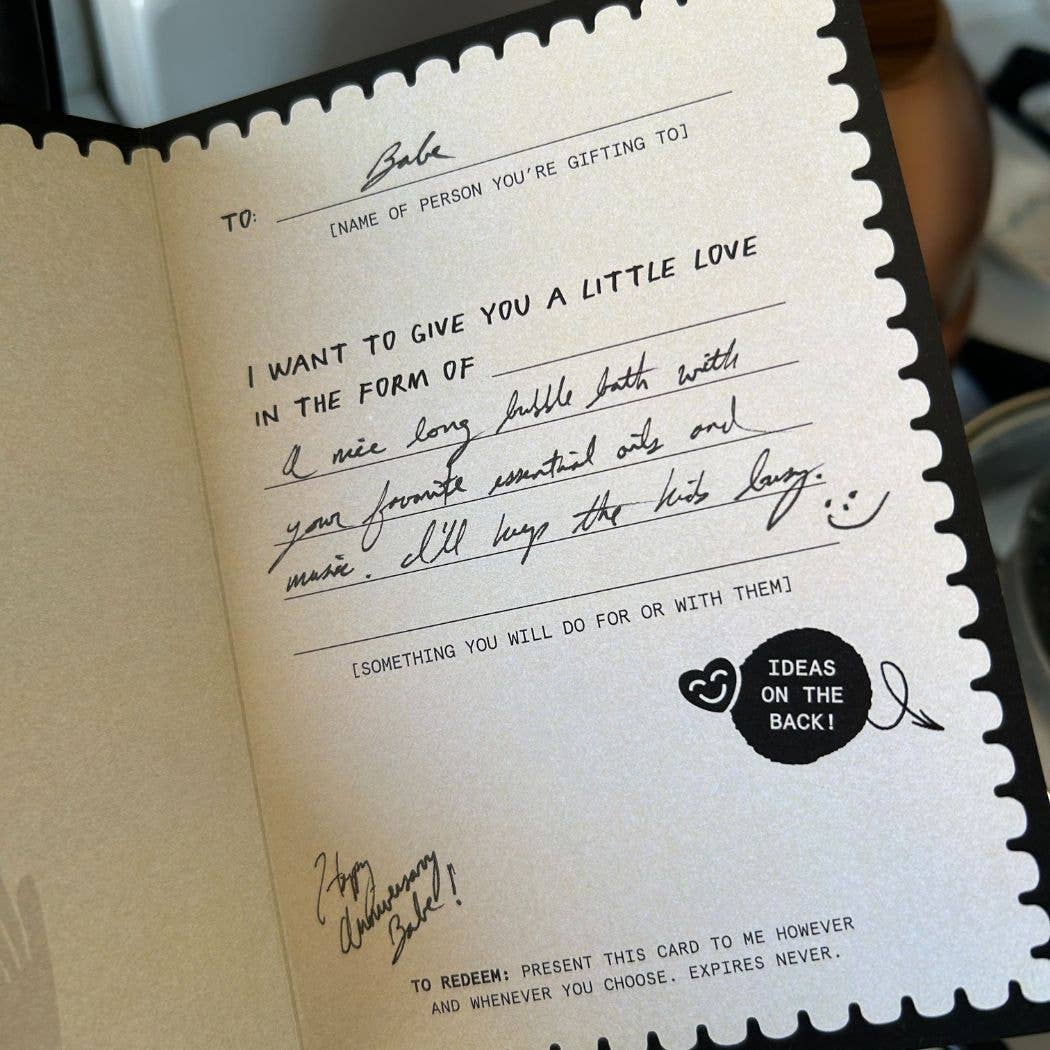 TO: Babe
[NAME OF PERSON YOU'RE GIFTING TO]
I WANT TO GIVE YOU A LITTLE LOVE
IN THE FORM OF
A nice long bubble bath with
your favorite essential oils and
music. I'll keep the kids busy. :)
[SOMETHING YOU WILL DO FOR OR WITH THEM]
IDEAS
ON THE
BACK!
Happy
Anniversary
Babe!
TO REDEEM: PRESENT THIS CARD TO ME HOWEVER
AND WHENEVER YOU CHOOSE. EXPIRES NEVER.